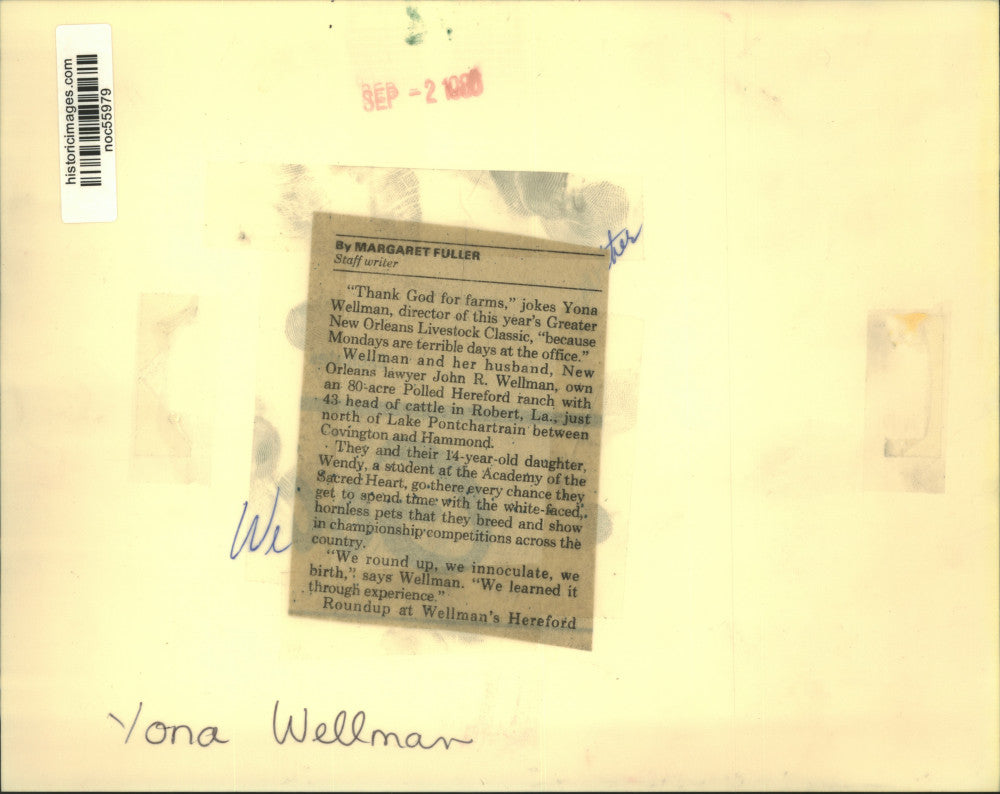 historicimages.com
noc55979
SEP - 2
ther
By MARGARET FULLER
Staff writer
“Thank God for farms,” jokes Yona
Wellman, director of this year’s Greater
New Orleans Livestock Classic, “because
Mondays are terrible days at the office.”
Wellman and her husband, New
Orleans lawyer John R. Wellman, own
an 80-acre Polled Hereford ranch with
43 head of cattle in Robert, La., just
north of Lake Pontchartrain between
Covington and Hammond.
They and their 14-year-old daughter,
Wendy, a student at the Academy of the
Sacred Heart, go there every chance they
get to spend time with the white-faced,
hornless pets that they breed and show
in championship competitions across the
country.
“We round up, we innoculate, we
birth,” says Wellman. “We learned it
through experience.”
Roundup at Wellman’s Hereford
We
Yona Wellman